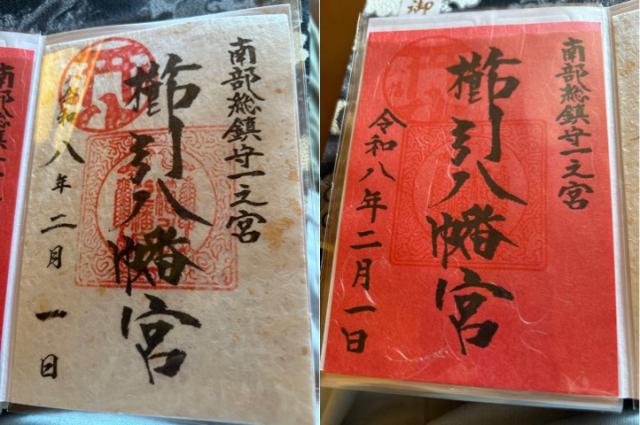 南部総鎮守一之宮
櫛引八幡宮
令和八年二月一日
御
南部総鎮守一之宮
櫛引八幡宮
令和八年二月一日